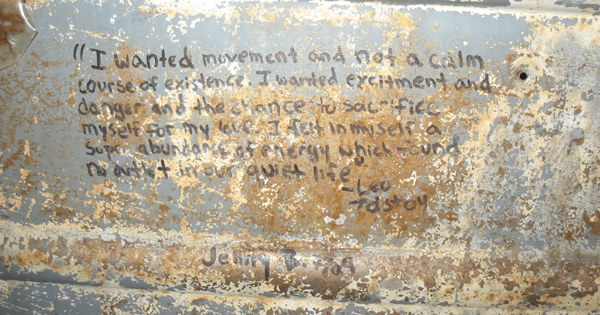 "I wanted movement and not a calm
course of existence. I wanted excitment and
danger and the chance to sacrifice
myself for my love. I felt in myself a
super abundance of energy which found
no outlet in our quiet life"
-Leo
Tolstoy
Jenny